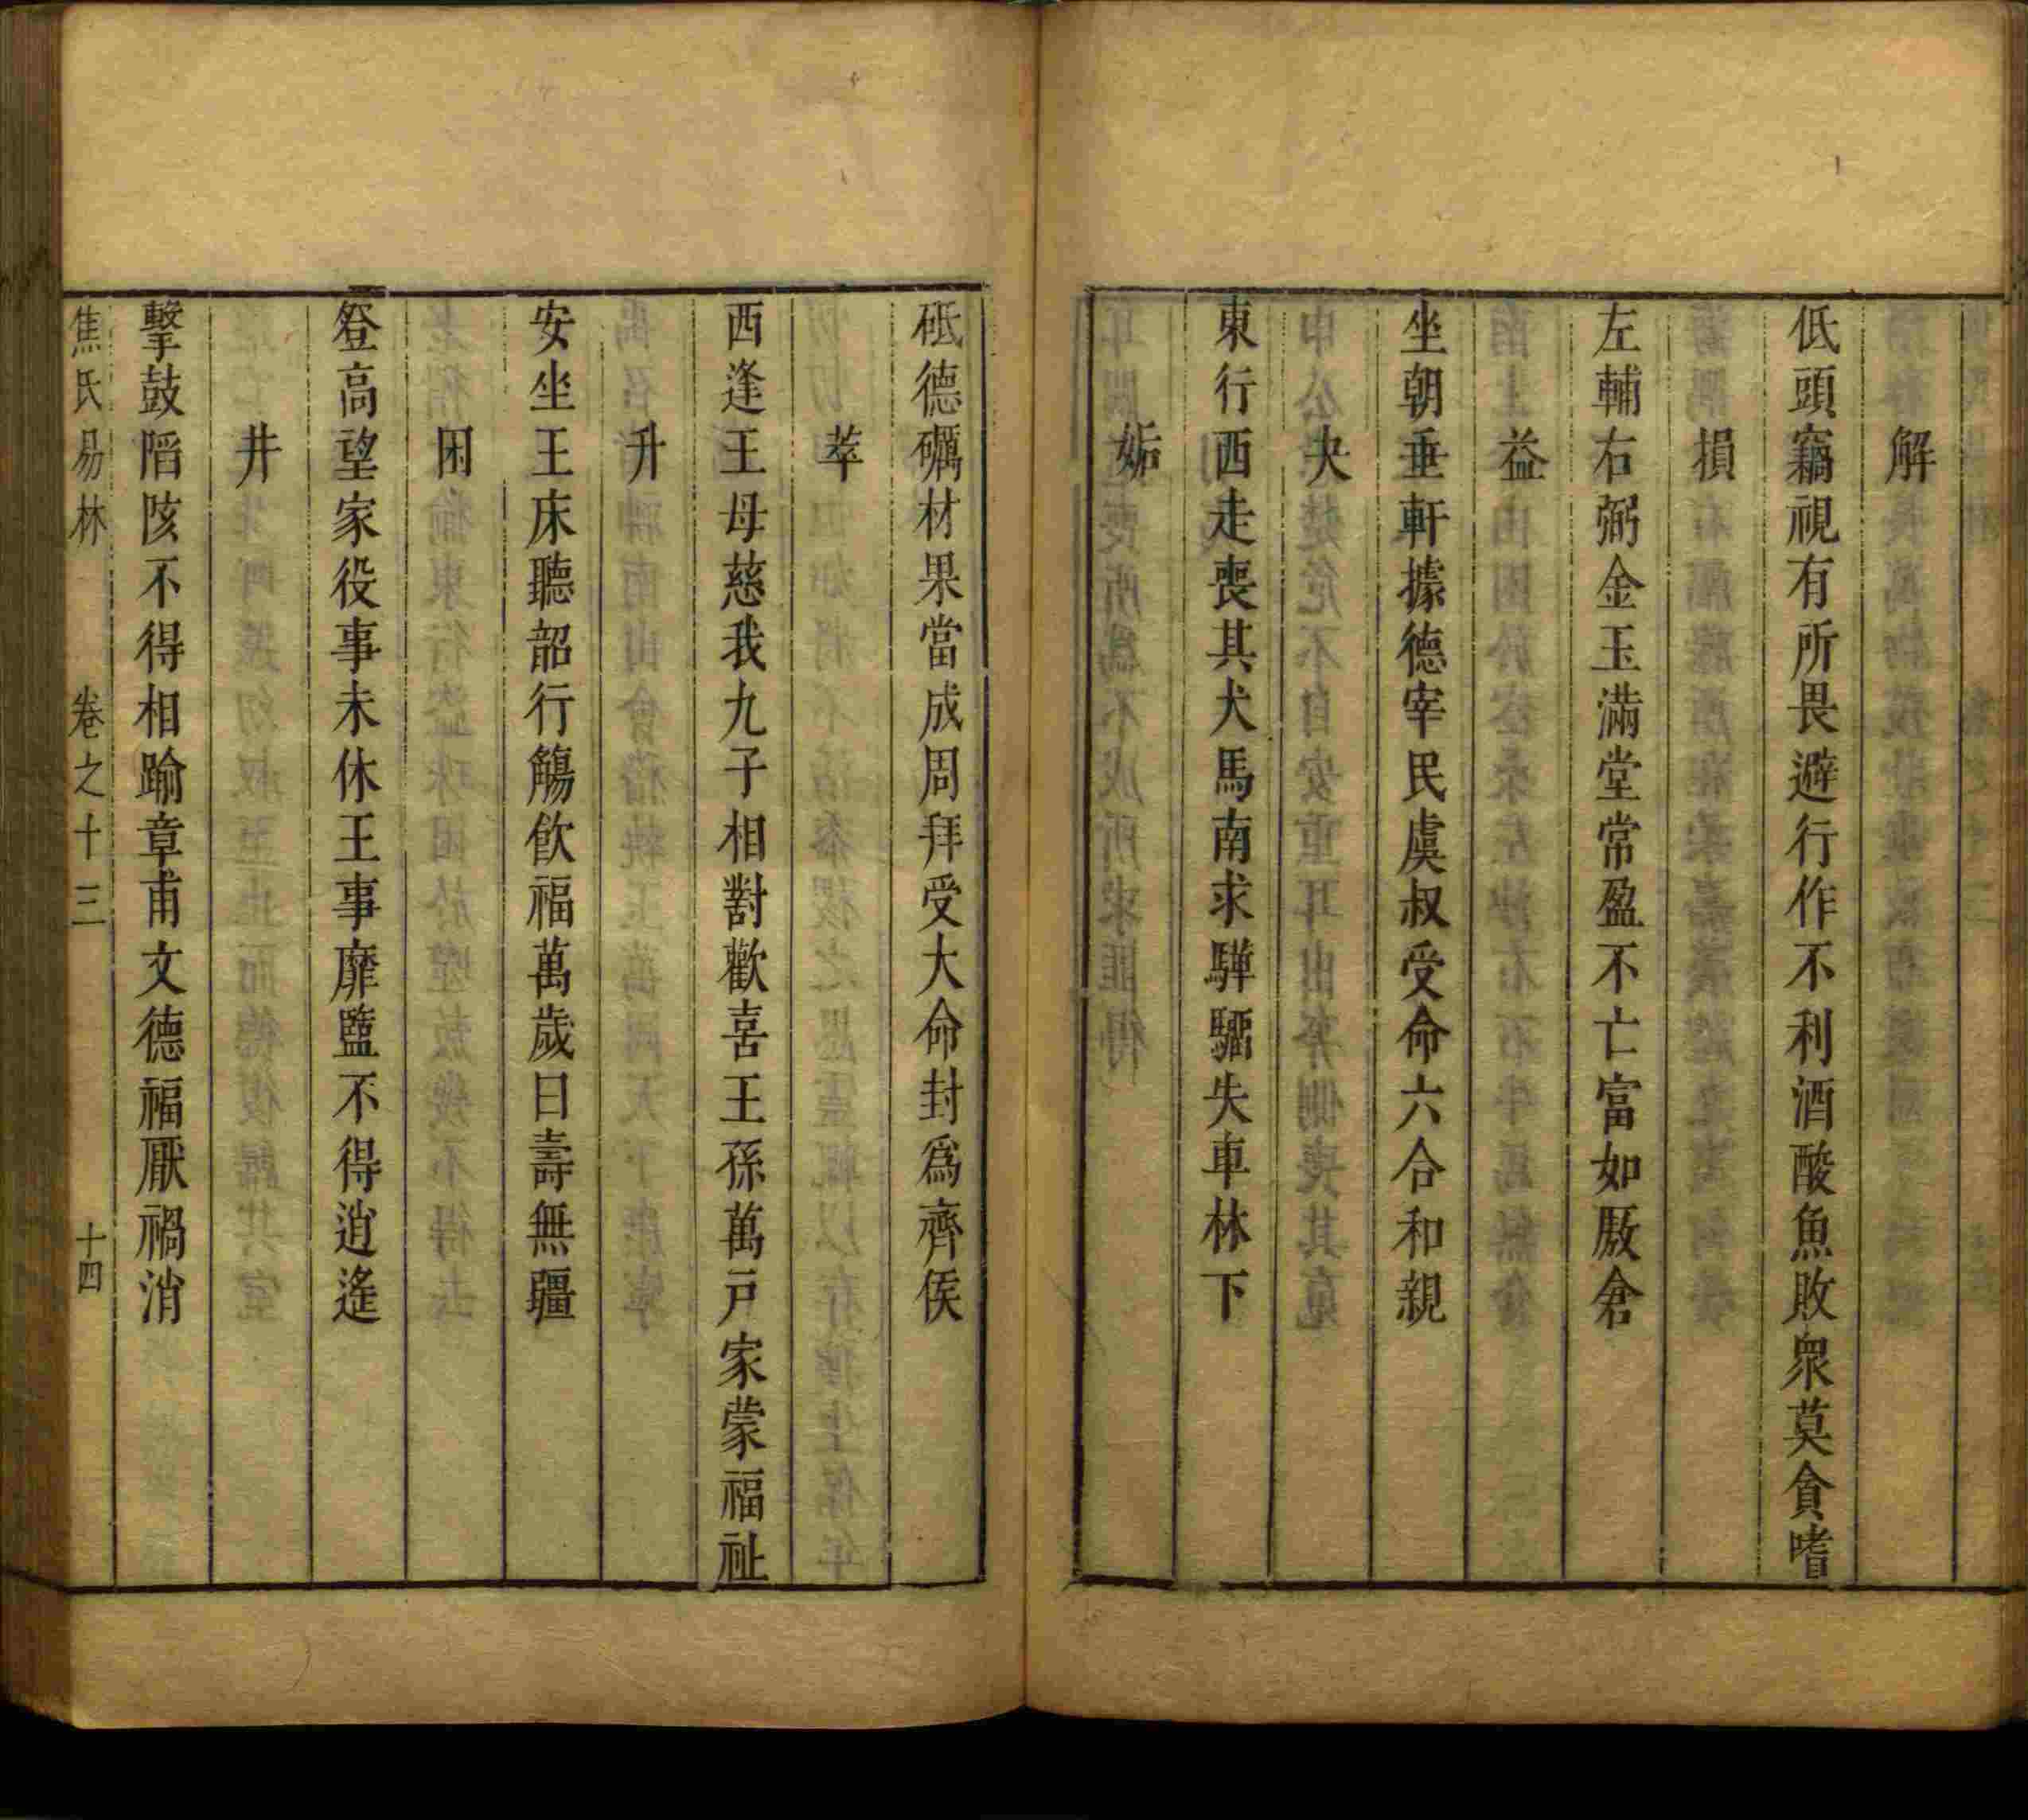 解
低頭竊視有所畏避行作不利酒酸魚敗衆莫貪嗜
損
左輔右弼金玉滿堂常盈不亡富如厫倉
益
坐朝垂軒據德宰民虞叔受命六合和親
夬
東行西走喪其犬馬南求驊騮失車林下
姤
砥德礪材果當成周拜受大命封爲齊侯
萃
西逢王母慈我九子相對歡喜王孫萬戸家蒙福祉
升
安坐王床聽韶行觴飲福萬歲日壽無疆
困
登高望家役事未休王事靡盬不得逍遙
井
擊鼓陷陔不得相踰章甫文德福厭禍消
焦氏易林 卷之十三 十四